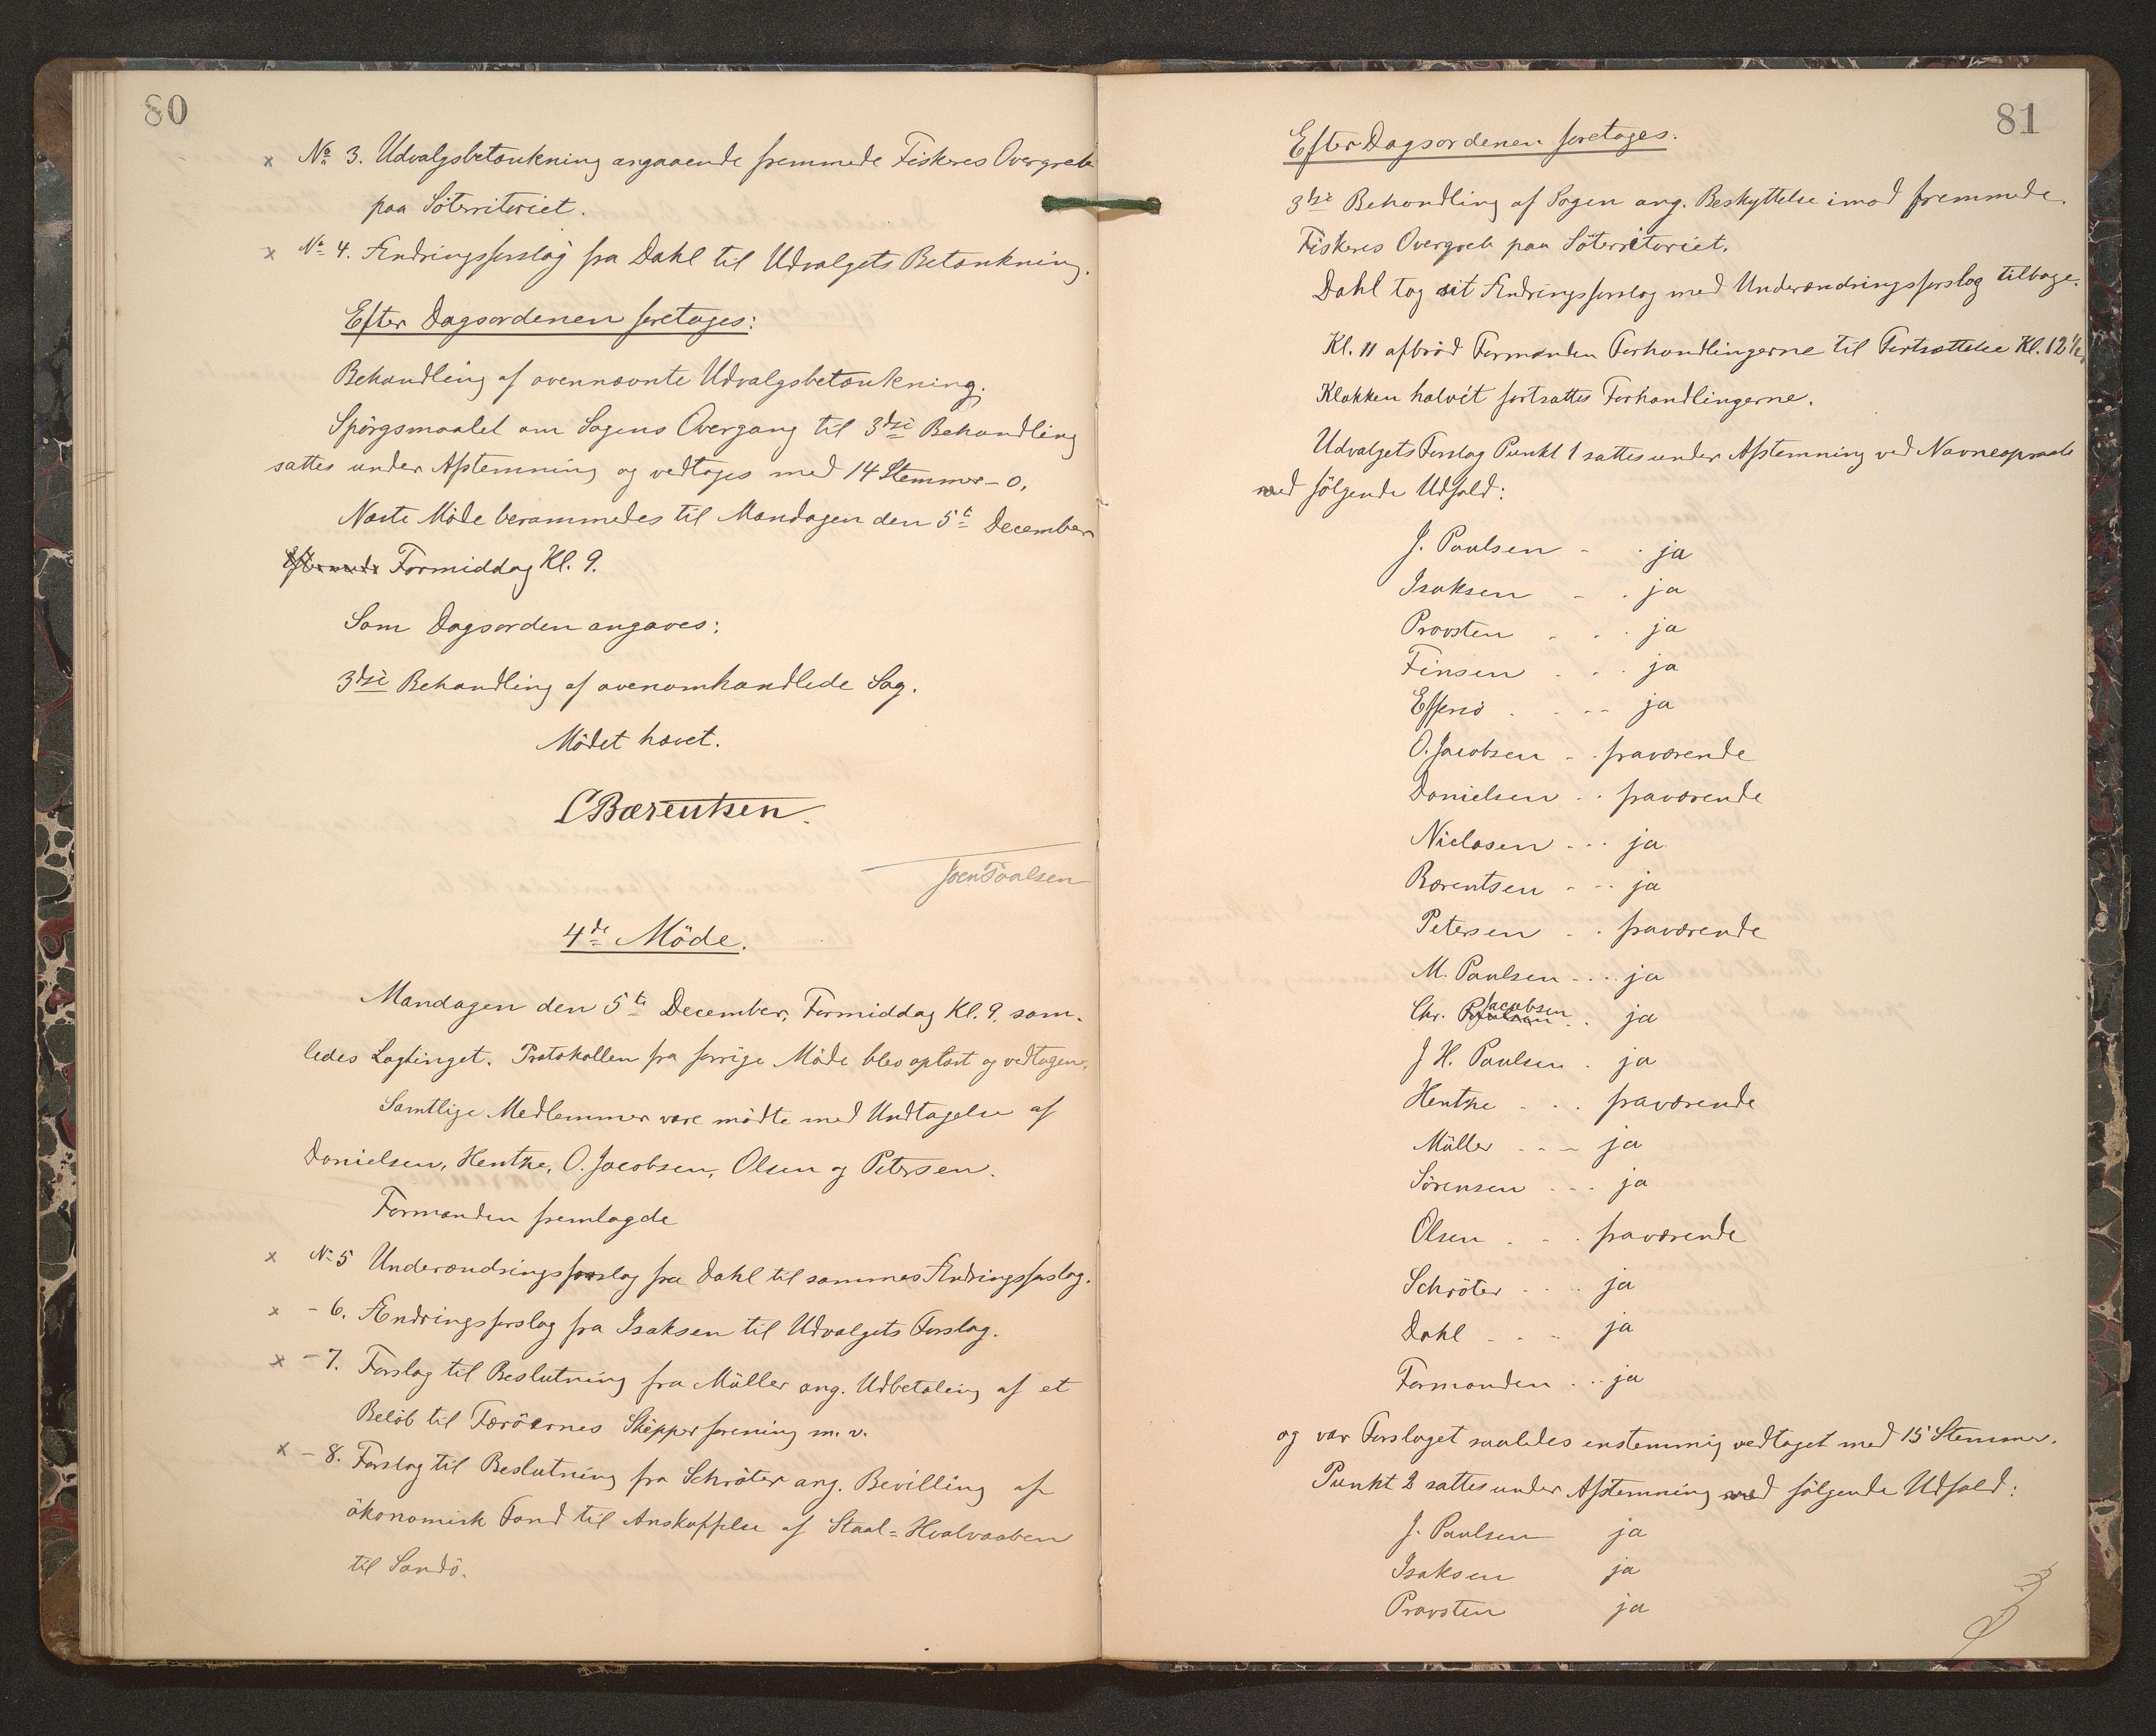 80
x No 3. Udvalgsbetænkning angaaende fremmede Fiskeres Overgreb
paa Søterritoriet.
x No 4. Ændringsforslag fra Dahl til Udvalgets Betænkning.
Efter Dagsordenen foretoges:
Behandling af ovennævnte Udvalgsbetænkning.
Spörgsmaalet om Sagens Overgang til 3die Behandling
sattes under Afstemning og vedtoges med 14 Stemmer - 0.
Næste Möde berammedes til Mandagen den 5te December
Formiddag Kl. 9.
Som Dagsorden angaves:
3die Behandling af ovenomhandlede Sag.
Mödet hævet.
C Bærentsen.
Joen Poulsen
4de Möde.
Mandagen den 5te December, Formiddag Kl. 9. sam-
ledes Lagtinget. Protokollen fra forrige Möde blev oplæst og vedtagen.
Samtlige Medlemmer vare mödte med Undtagelse af
Danielsen, Hentze, O. Jacobsen, Olsen og Petersen.
Formanden fremlagde
x No 5 Underændringsforslag fra Dahl til sammes Ændringsforslag.
x - 6. Ændringsforslag fra Isaksen til Udvalgets Forslag.
x - 7. Forslag til Beslutning fra Müller ang. Udbetaling af et
Belöb til Færöernes Skipperforening m. v.
x - 8. Forslag til Beslutning fra Schröter ang. Bevilling af
ökonomisk Fond til Anskaffelse af Staal-Hvalvaaben
til Sandö.
81
Efter Dagsordenen foretoges:
3die Behandling af Sagen ang. Beskyttelse imod fremmede
Fiskeres Overgreb paa Söterritoriet.
Dahl tog sit Ændringsforslag med Underændringsforslag tilbage.
Kl. 11 afbröd Formanden Forhandlingerne til Fortsættelse Kl. 12 1/2.
Klokken halvét fortsattes Forhandlingerne.
Udvalgets Forslag Punkt 1 sattes under Afstemning ved Navneopraab
med fölgende Udfald:
J. Poulsen - . ja
Isaksen - . ja
Provsten . . . ja
Finsen . . . ja
Effersö . . -- ja
O. Jacobsen - . fraværende
Danielsen . . fraværende
Niclasen . . . ja
Bærentsen - - . ja
Petersen . . fraværende
M. Poulsen . . . . ja
Chr. Jacobsen . . ja
J H. Poulsen . ja
Hentze . . . fraværende
Müller . . - ja
Sörensen . . . ja
Olsen . . . fraværende
Schröter . . . . ja
Dahl . . . ja
Formanden . . . ja
og var Forslaget saaledes enstemmig vedtaget med 15 Stemmer.
Punkt 2 sattes under Afstemning med fölgende Udfald:
J. Poulsen ja
Isaksen ja
Provsten ja